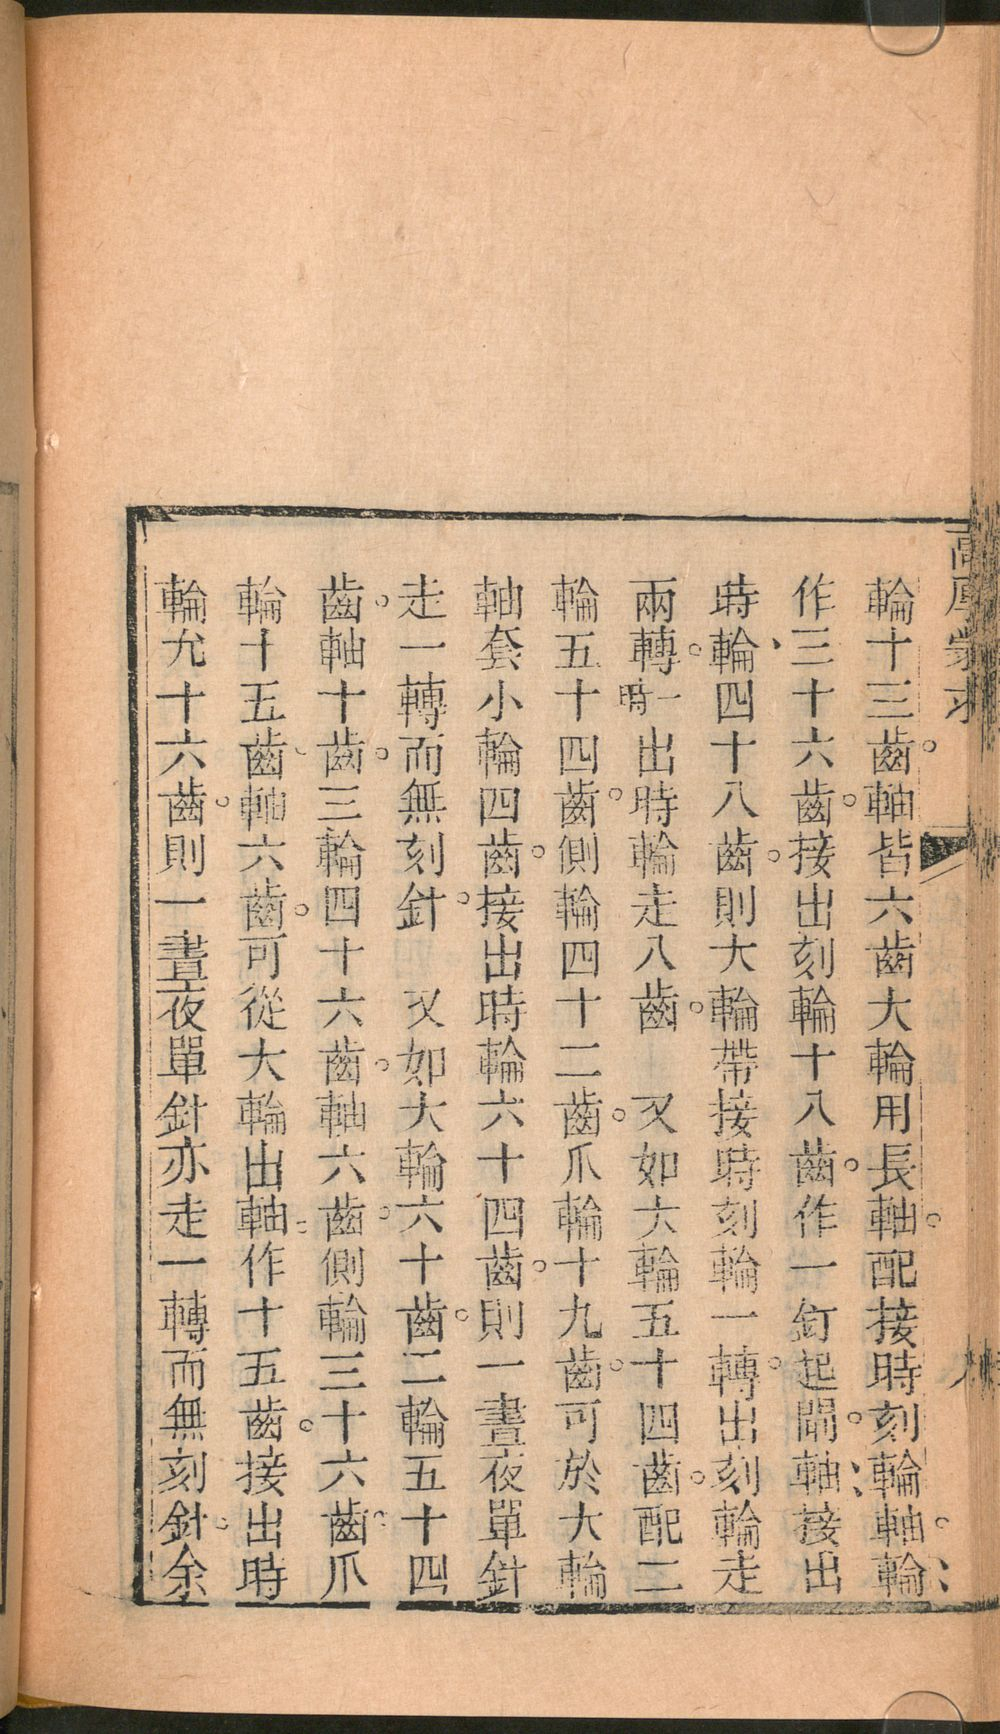 輪十三齒。軸皆六齒大輪用長軸。配接時刻輪軸。輪、
作三十六齒。接出刻輪十八齒。作一釘起閙。軸、接、出
時輪、四十八齒。則大輪帶接時刻輪一轉。出刻輪走
兩轉。一時出時輪走八齒。 又如大輪五十四齒。配二
輪五十四齒。側輪四十二齒。爪輪十九齒。可於大輪
軸套小輪四齒。接出時輪六十四齒。則一晝夜單針
走一轉而無刻針。 又如大輪六十齒。二輪五十四
齒。軸十齒。三輪四十六齒。軸六齒。側輪三十六齒。爪
輪十五齒、軸六齒。可從大輪出軸。作十五齒。接出時
輪九十六齒。則一晝夜單針亦走一轉而無刻針。余